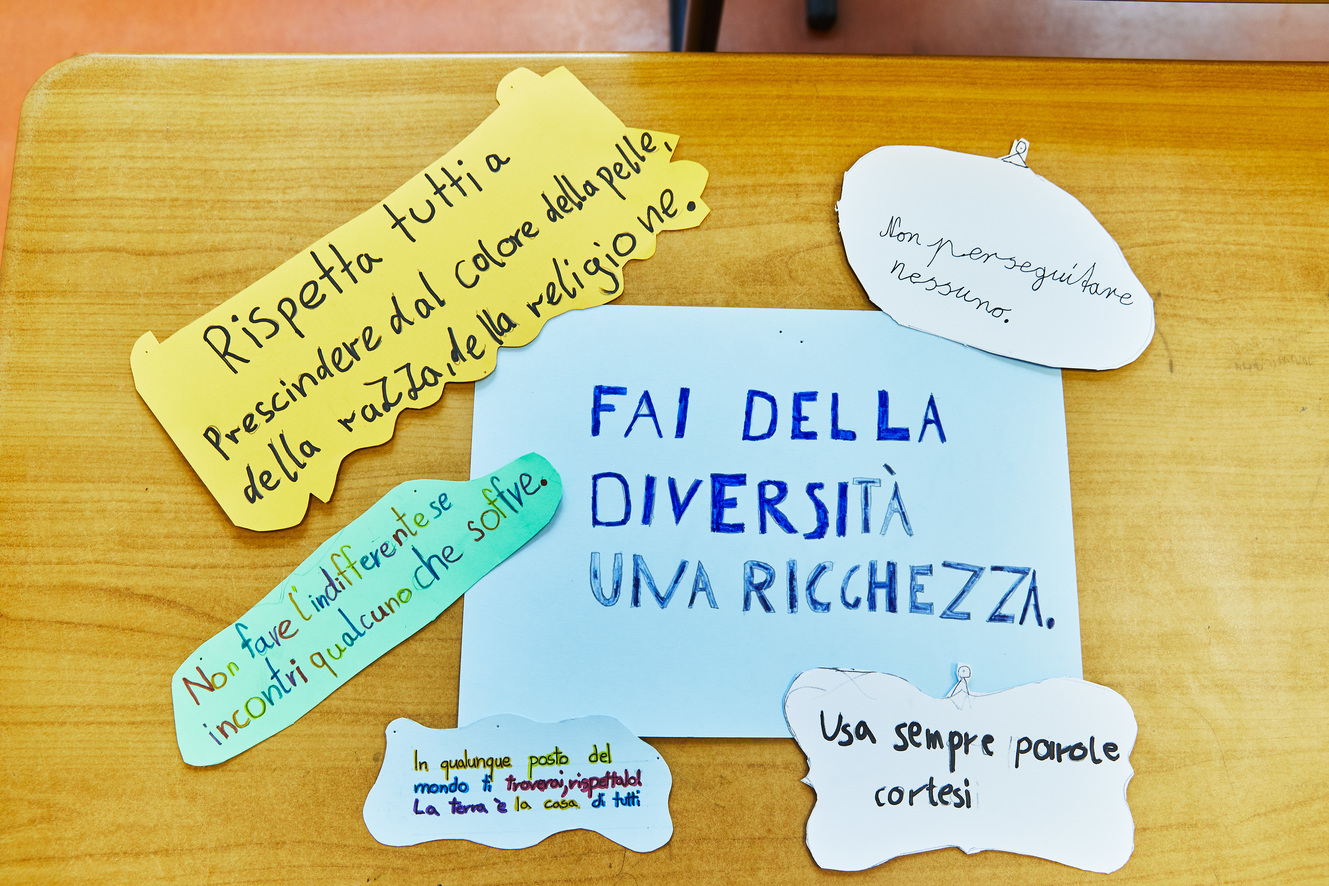 Rispetta tutti a
Prescindere dal colore della pelle,
della razza, della religione.
Non perseguitare
nessuno.
FAI DELLA
DIVERSITÀ
UNA RICCHEZZA.
Non fare l'indifferente se
incontri qualcuno che soffre.
In qualunque posto del
mondo ti troverai, rispettalo!
La terra è la casa di tutti
Usa sempre parole
cortesi